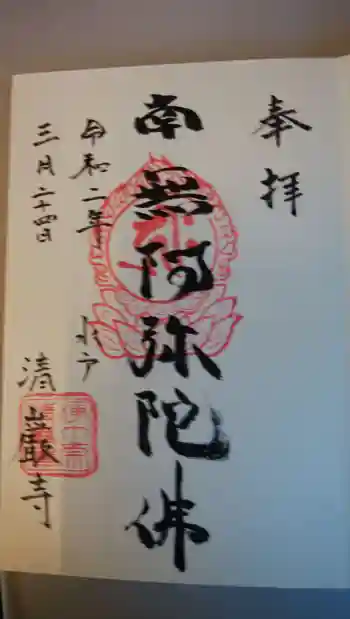 奉拝
南無阿弥陀佛
令和二年 水戸
三月二十四日
清巖寺